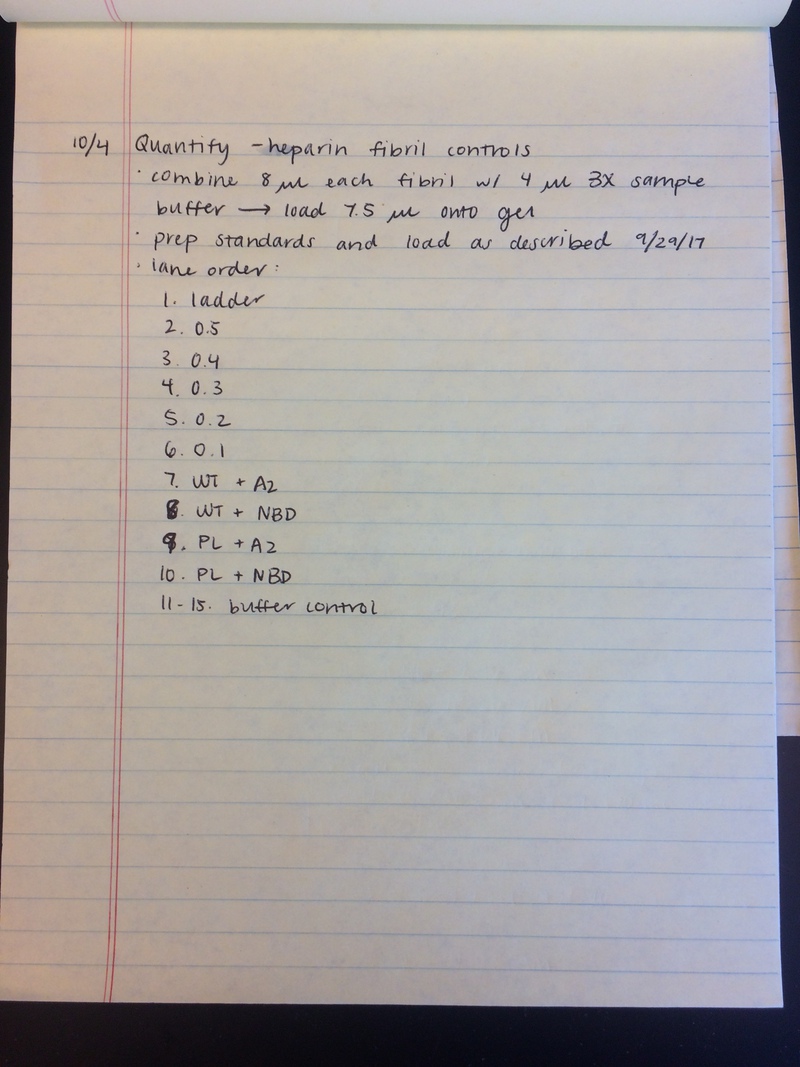 10/4 Quantify -heparin fibril controls
· combine 8 μl each fibril w/ 4 μl 3X sample
buffer → load 7.5 μl onto gel
· prep standards and load as described 9/29/17
· lane order:
1. ladder
2. 0.5
3. 0.4
4. 0.3
5. 0.2
6. 0.1
7. WT + A2
8. WT + NBD
9. PL + A2
10. PL + NBD
11-15. buffer control